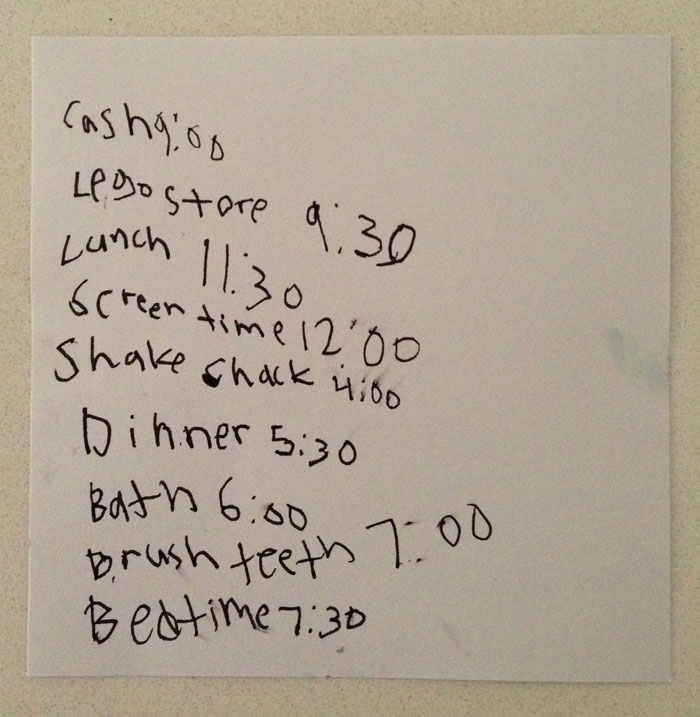 Cash 9:00
Lego store 9:30
Lunch 11:30
Screen time 12:00
Shake Shack 4:00
Dinner 5:30
Bath 6:00
Brush teeth 7:00
Bedtime 7:30